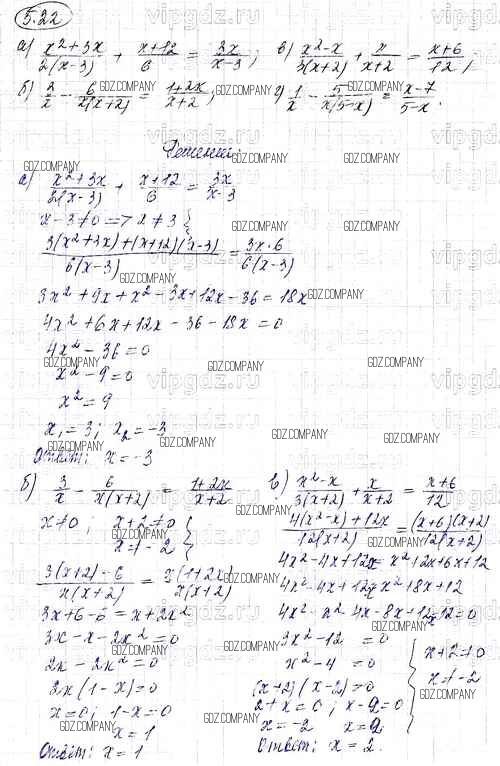 5.22
а) (x²+3x)/(2(x-3)) + (x+12)/6 = 3x/(x-3); в) (x²-x)/(3(x+2)) + x/(x+2) = (x+6)/12;
б) 3/x - 6/(x(x+2)) = (1+2x)/(x+2); г) 1/x - 5/(x(5-x)) = (x-7)/(5-x).
Решение:
а) (x²+3x)/(2(x-3)) + (x+12)/6 = 3x/(x-3)
x-3≠0 => x≠3 }
(3(x²+3x)+(x+12)(x-3))/(6(x-3)) = (3x·6)/(6(x-3))
3x²+9x+x²-3x+12x-36=18x
4x²+6x+12x-36-18x=0
4x²-36=0
x²-9=0
x²=9
x₁=3; x₂=-3
Ответ: x=-3
б) 3/x - 6/(x(x+2)) = (1+2x)/(x+2)
x≠0, x+2≠0
x≠-2 }
(3(x+2)-6)/(x(x+2)) = (x(1+2x))/(x(x+2))
3x+6-6=x+2x²
3x-x-2x²=0
2x-2x²=0
2x(1-x)=0
x=0; 1-x=0
x=1
Ответ: x=1
в) (x²-x)/(3(x+2)) + x/(x+2) = (x+6)/12
(4(x²-x)+12x)/(12(x+2)) = ((x+6)(x+2))/(12(x+2))
4x²-4x+12x=x²+2x+6x+12
4x²-4x+12x=x²+8x+12
4x²-x²-4x-8x+12x-12=0
3x²-12=0
x²-4=0
(x+2)(x-2)=0
2+x=0; x-2=0
x=-2 x=2
{ x+2≠0
x≠-2
Ответ: x=2.
GDZ.COMPANY
vipgdz.ru